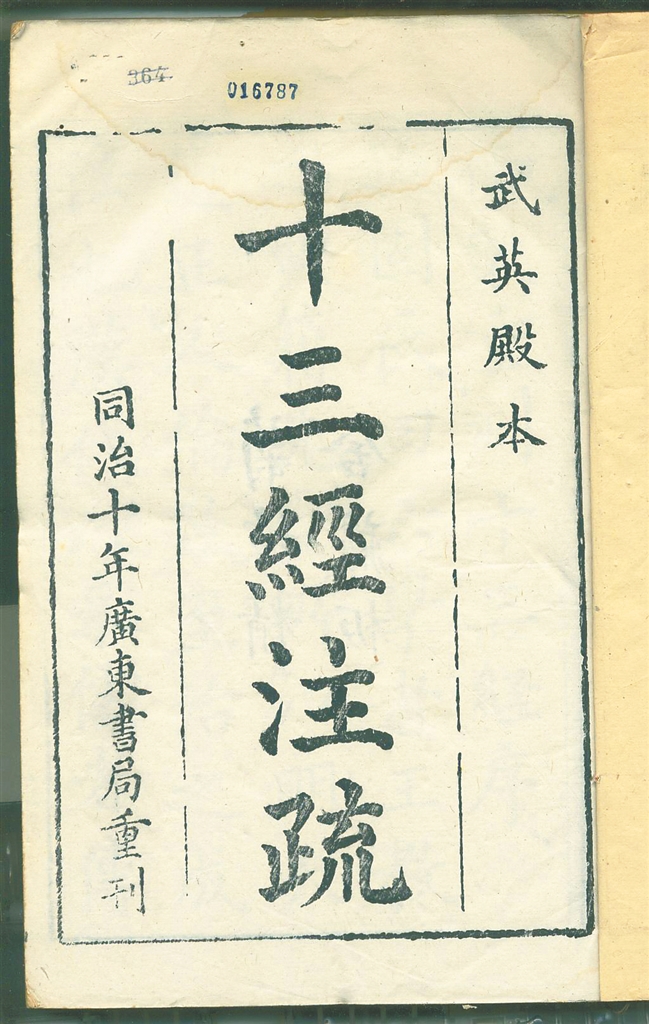 364
016787
武英殿本
十三經注疏
同治十年廣東書局重刊